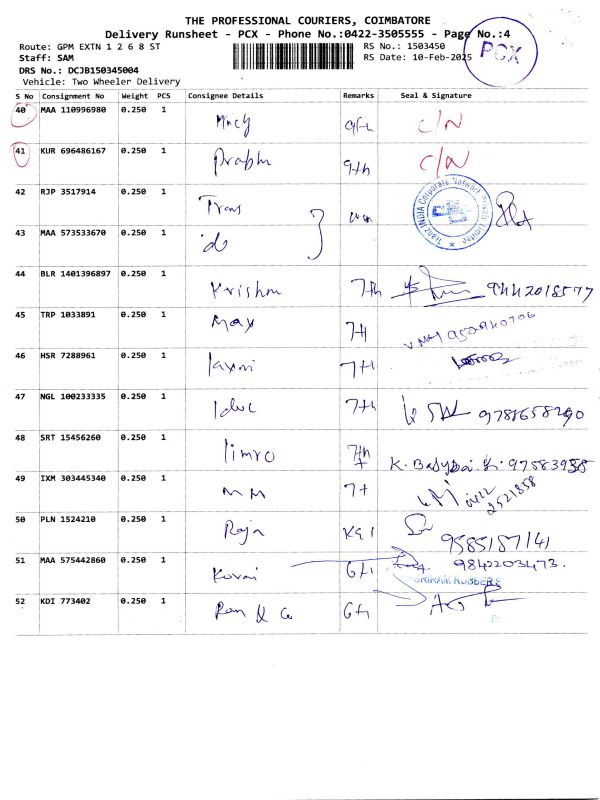 THE PROFESSIONAL COURIERS, COIMBATORE
Delivery Runsheet - PCX - Phone No.:0422-3505555 - Page No.:4
Route: GPM EXTN 1 2 6 8 ST RS No.: 1503450
Staff: SAM RS Date: 10-Feb-2025
PCX
DRS No.: DCJB150345004
Vehicle: Two Wheeler Delivery
S No Consignment No Weight PCS Consignee Details Remarks Seal & Signature
40 MAA 110996980 0.250 1 C/N
41 KUR 696486167 0.250 1 Prabhu 9th C/N
42 RJP 3517914 0.250 1 Trans
Tranz INDIA Corporate Network Private Limited
43 MAA 573533670 0.250 1 do
44 BLR 1401396897 0.250 1 Krishna 7th 9442018577
45 TRP 1033891 0.250 1 Max 7th
46 HSR 7288961 0.250 1 laxmi 7th
47 NGL 100233335 0.250 1 7th
48 SRT 15456260 0.250 1 limro 7th
49 IXM 303445340 0.250 1 MM 7th 0422 2521858
50 PLN 1524210 0.250 1 Raja 9585187141
51 MAA 575442860 0.250 1 Kovai 6th 9842203473.
52 KDI 773402 0.250 1 Ram & Co 6th